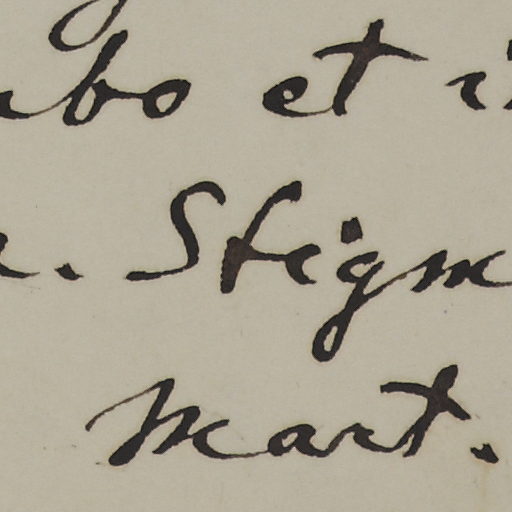 bo et i
. Stigm
Mart.